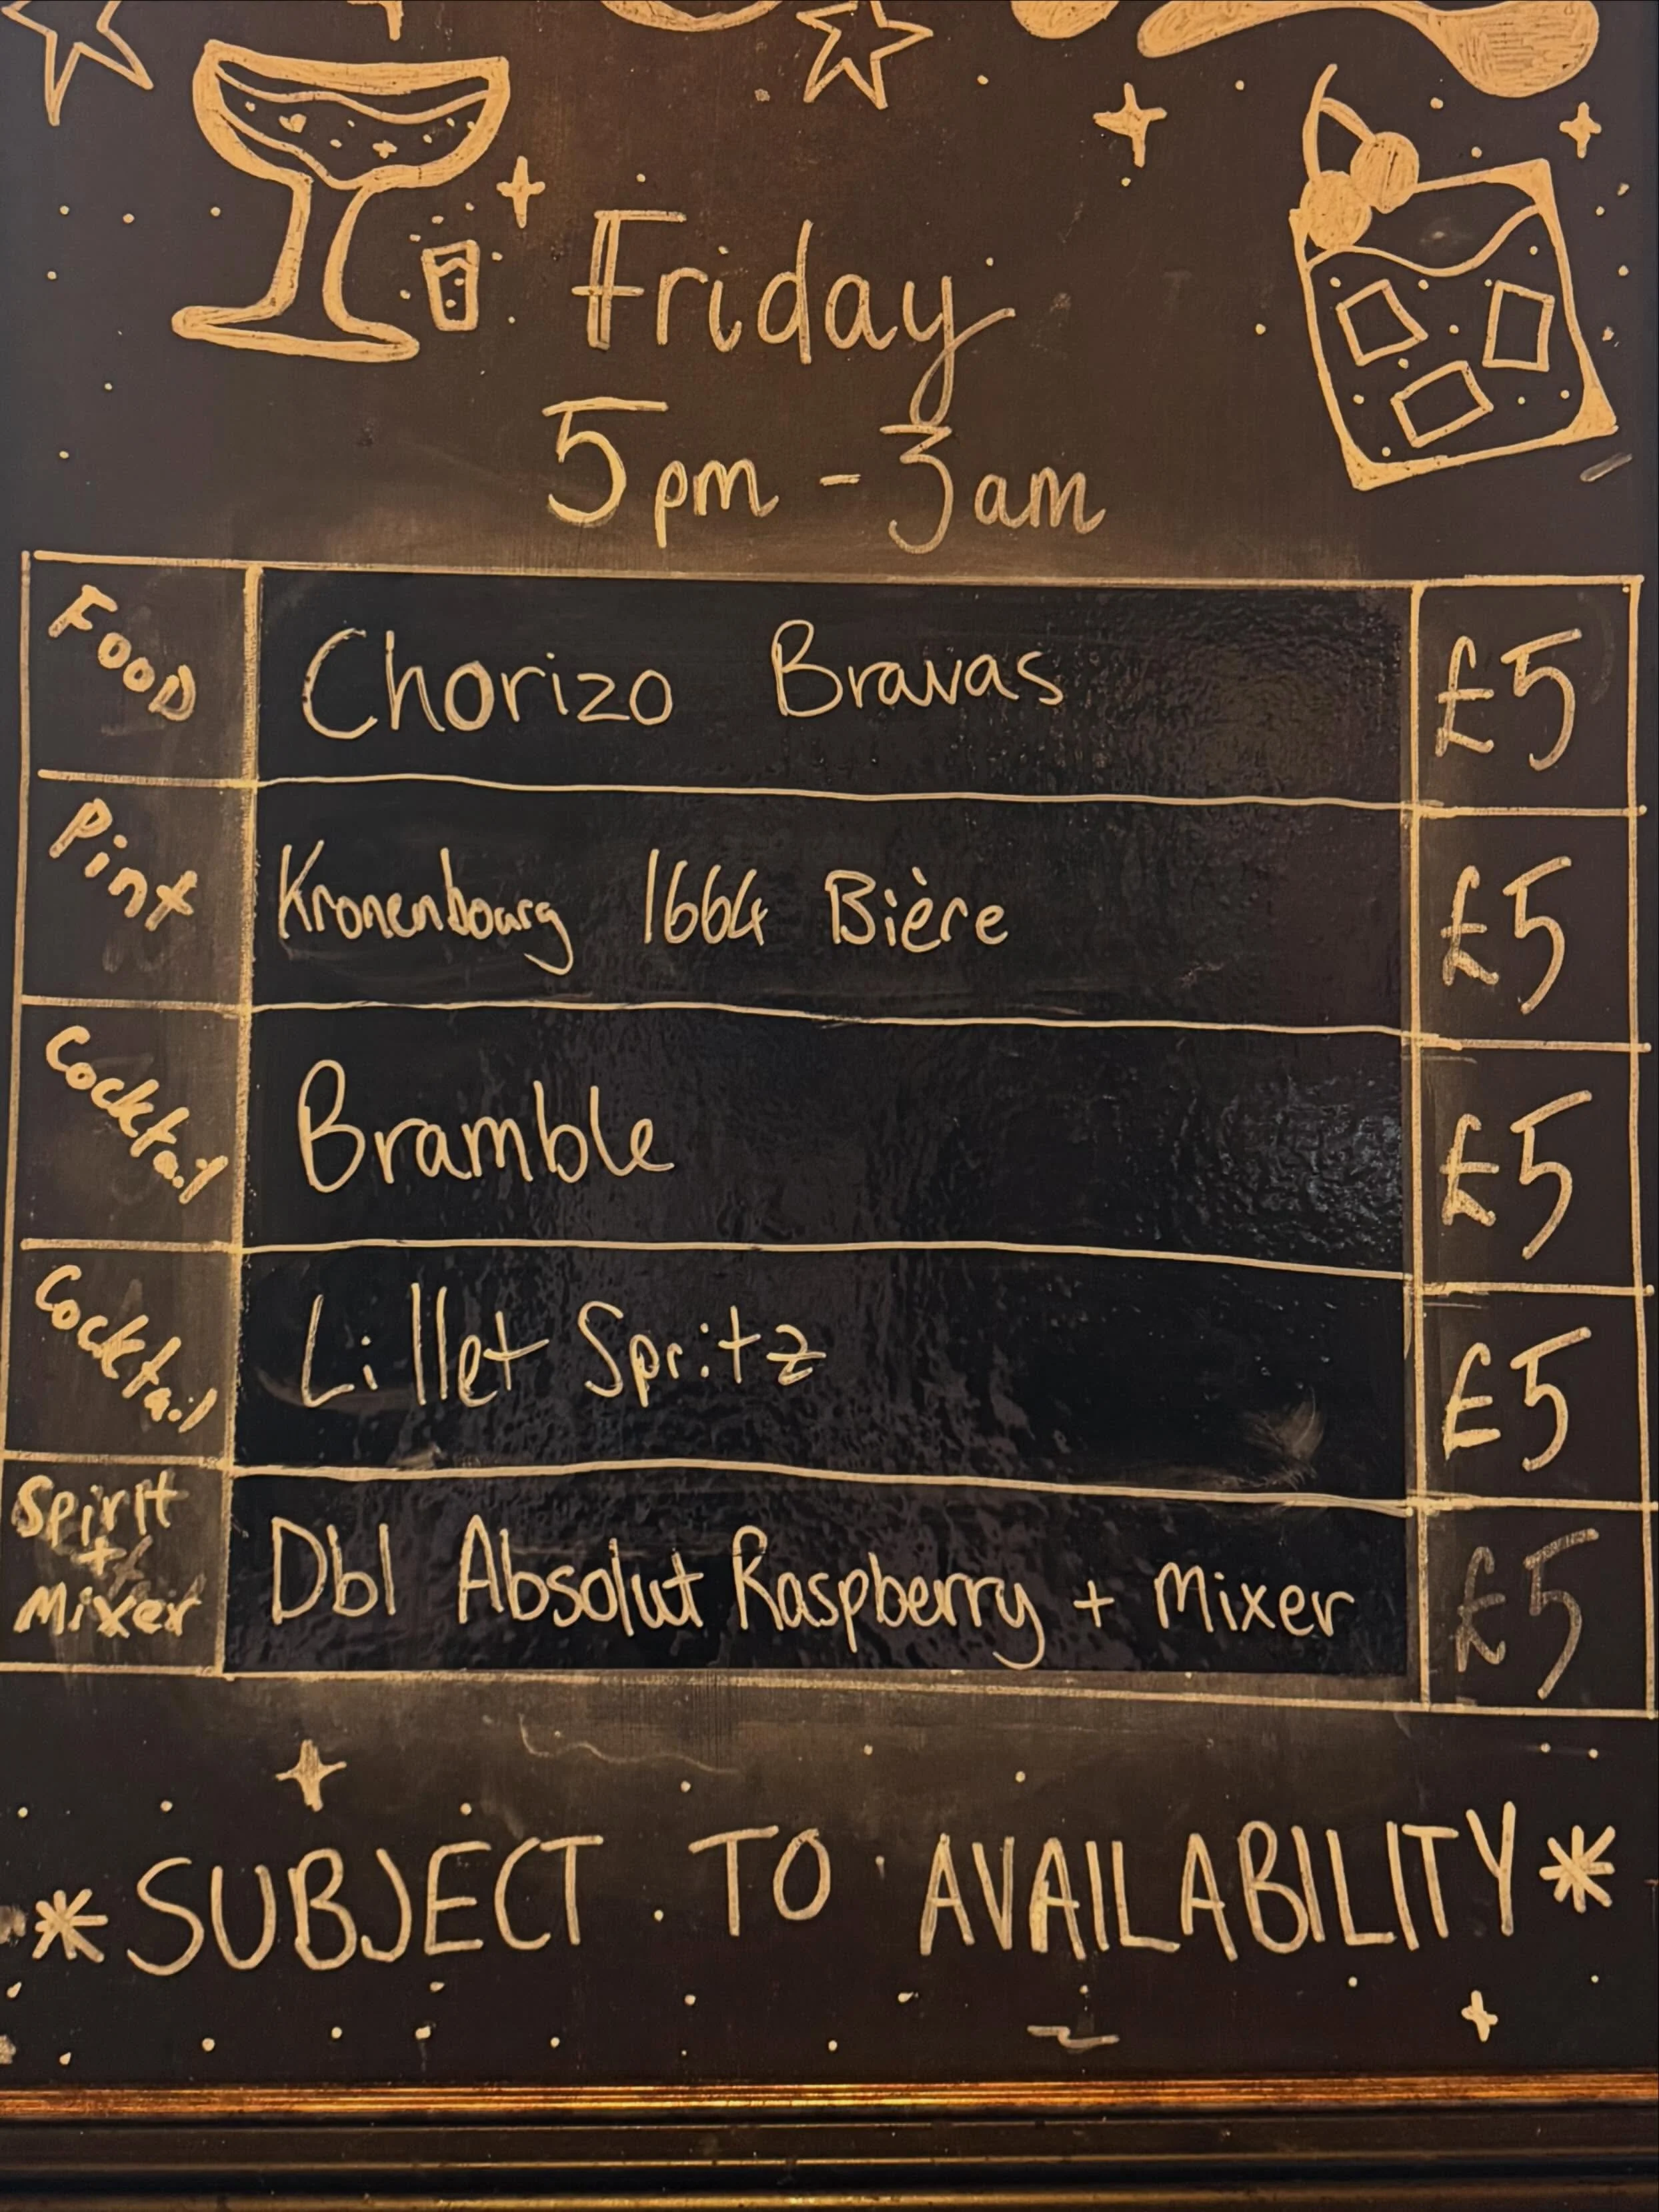 Friday
5pm - 3am
Food Chorizo Bravas £5
Pint Kronenbourg 1664 Bière £5
Cocktail Bramble £5
Cocktail Lillet Spritz £5
Spirit + Mixer Dbl Absolut Raspberry + Mixer £5
*SUBJECT TO AVAILABILITY*